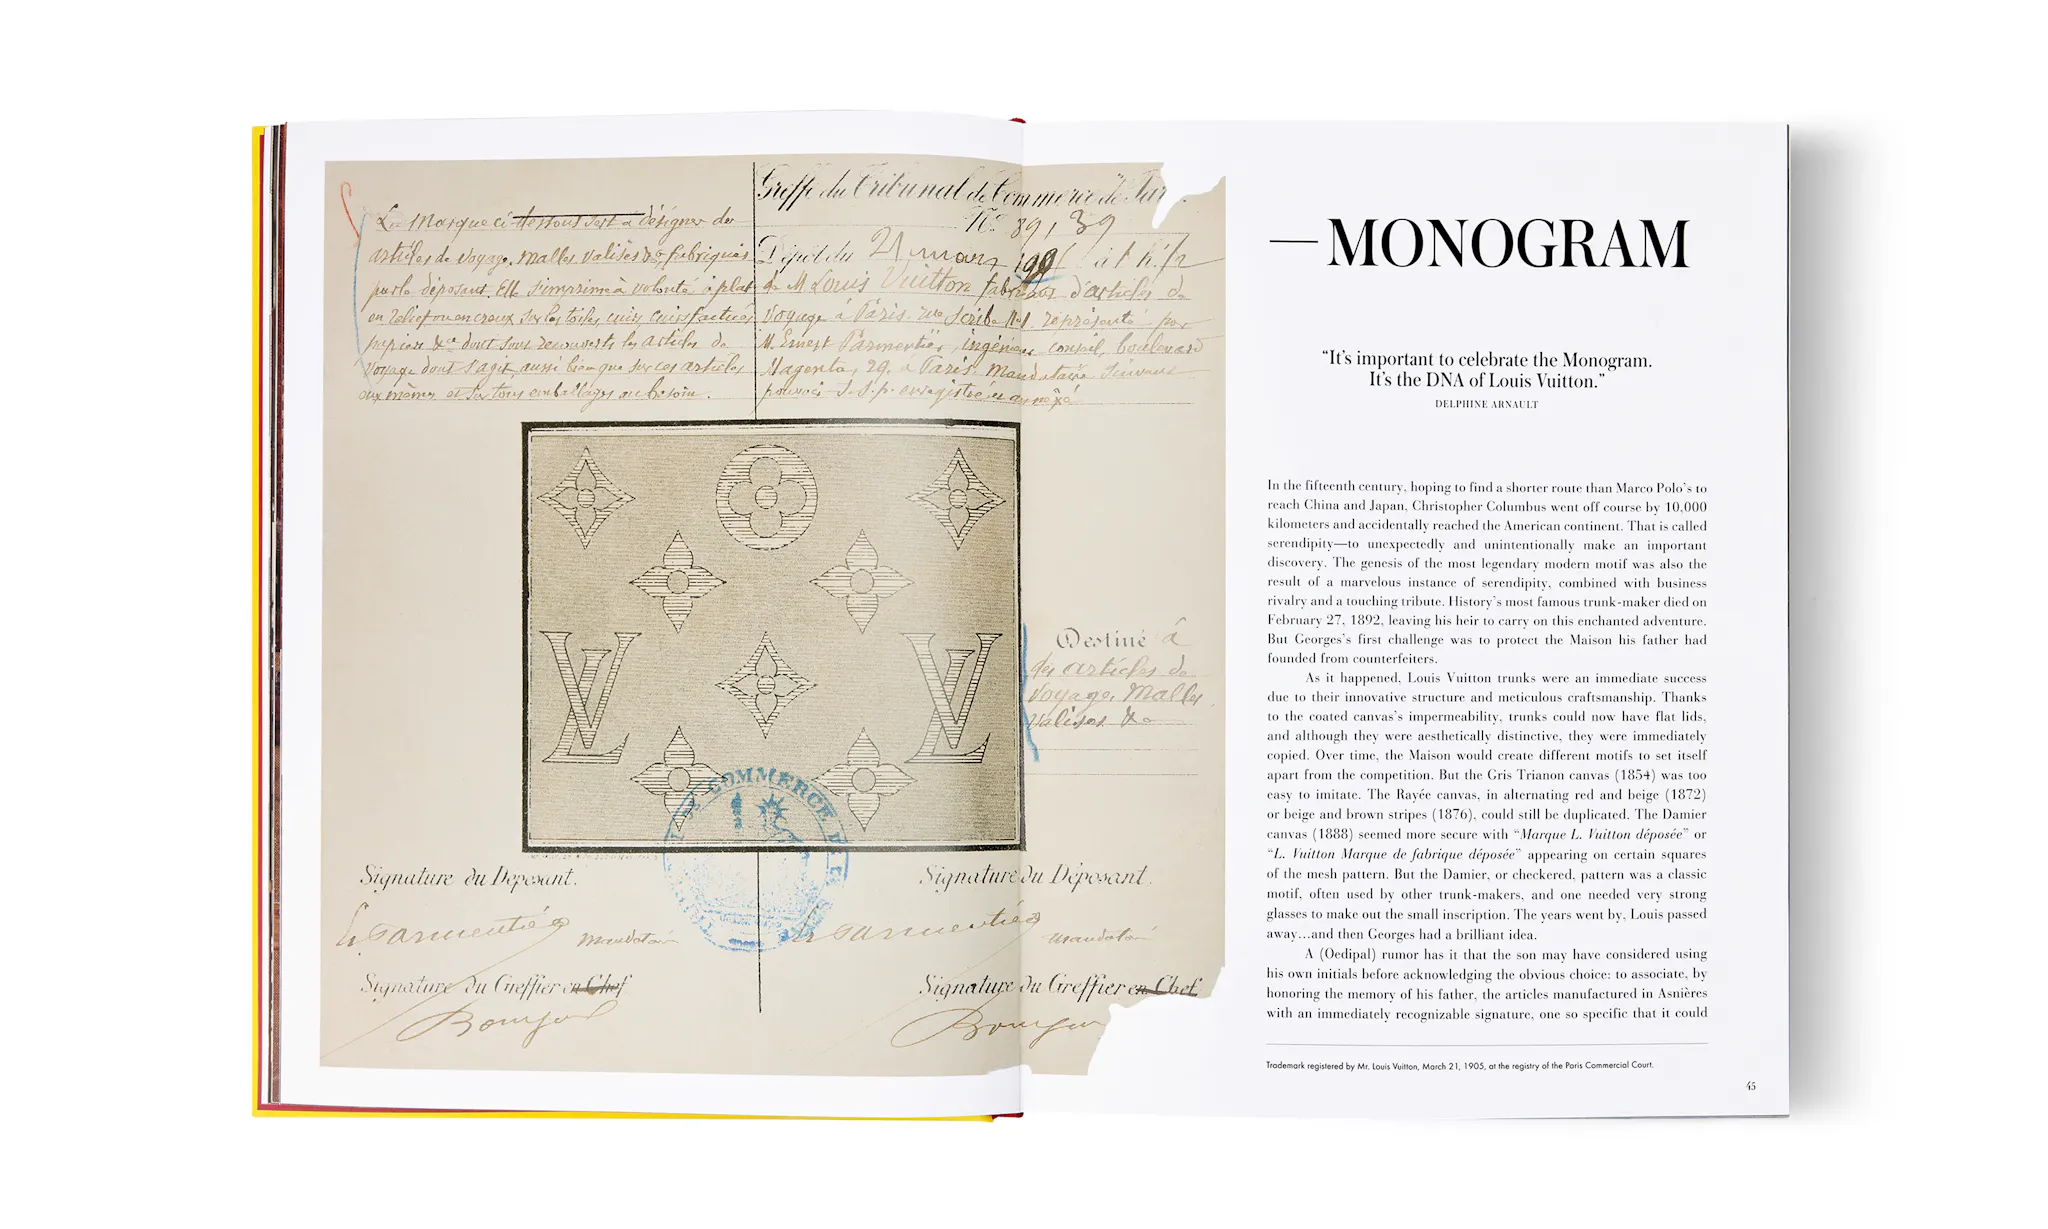 La Marque ci-dessous sert à désigner des
articles de voyage, malles valises &a fabriqués
par le déposant. Elle s'imprime à volonté à plat
en relief ou en creux sur les toiles, cuirs, cuirs factices
papiers &a dont sont recouverts les articles de
voyage dont s'agit, aussi bien que sur ces articles
eux mêmes et sur tous emballages au besoin.
Greffe du Tribunal de Commerce de Par
No 89,39
Dépôt du 21 mars
de M Louis Vuitton fabricant d'articles de
voyage à Paris rue Scribe No 1 représenté par
M. Ernest Parmentier, ingénieur conseil, boulevard
Magenta, 29, à Paris, mandataire suivant
pouvoir s.s.p. enregistré et annexé
LV
LV
Destiné à
des articles de
voyage, malles
valises &a
COMMERCE DE
Signature du Déposant.
Signature du Déposant.
E Parmentier mandataire
E Parmentier mandataire
Signature du Greffier en Chef
Signature du Greffier en Chef
—MONOGRAM
“It’s important to celebrate the Monogram.
It’s the DNA of Louis Vuitton.”
DELPHINE ARNAULT
In the fifteenth century, hoping to find a shorter route than Marco Polo’s to
reach China and Japan, Christopher Columbus went off course by 10,000
kilometers and accidentally reached the American continent. That is called
serendipity—to unexpectedly and unintentionally make an important
discovery. The genesis of the most legendary modern motif was also the
result of a marvelous instance of serendipity, combined with business
rivalry and a touching tribute. History’s most famous trunk-maker died on
February 27, 1892, leaving his heir to carry on this enchanted adventure.
But Georges’s first challenge was to protect the Maison his father had
founded from counterfeiters.
As it happened, Louis Vuitton trunks were an immediate success
due to their innovative structure and meticulous craftsmanship. Thanks
to the coated canvas’s impermeability, trunks could now have flat lids,
and although they were aesthetically distinctive, they were immediately
copied. Over time, the Maison would create different motifs to set itself
apart from the competition. But the Gris Trianon canvas (1854) was too
easy to imitate. The Rayée canvas, in alternating red and beige (1872)
or beige and brown stripes (1876), could still be duplicated. The Damier
canvas (1888) seemed more secure with “Marque L. Vuitton déposée” or
“L. Vuitton Marque de fabrique déposée” appearing on certain squares
of the mesh pattern. But the Damier, or checkered, pattern was a classic
motif, often used by other trunk-makers, and one needed very strong
glasses to make out the small inscription. The years went by, Louis passed
away…and then Georges had a brilliant idea.
A (Oedipal) rumor has it that the son may have considered using
his own initials before acknowledging the obvious choice: to associate, by
honoring the memory of his father, the articles manufactured in Asnières
with an immediately recognizable signature, one so specific that it could
Trademark registered by Mr. Louis Vuitton, March 21, 1905, at the registry of the Paris Commercial Court.
45